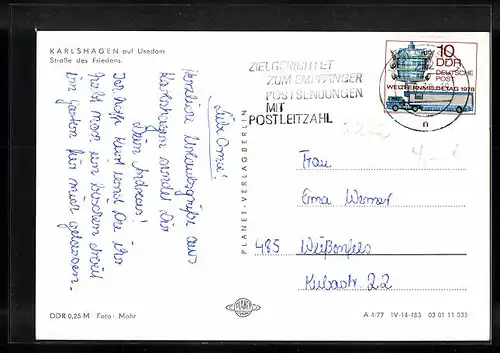 KARLSHAGEN auf Usedom
Straße des Friedens
Liebe Oma!
Herzliche Urlaubsgrüße aus
Karlshagen sendet Dir
Dein Andreas!
Ich hoffe Kurt und Du Ihr
habt noch ein bisschen Arbeit
im Garten für mich gelassen.
DDR 0,25 M Foto: Mohr
PLANET-VERLAG BERLIN
PLANET
ZIELGERICHTET
ZUM EMPFÄNGER
POSTSENDUNGEN
MIT
POSTLEITZAHL
10
DDR
DEUTSCHE
POST
WELTFERNMELDETAG 1978
n
Frau
Erna Werner
485 Weißenfels
Kubastr. 22
A 4/77 IV-14-483 03 01 11 033